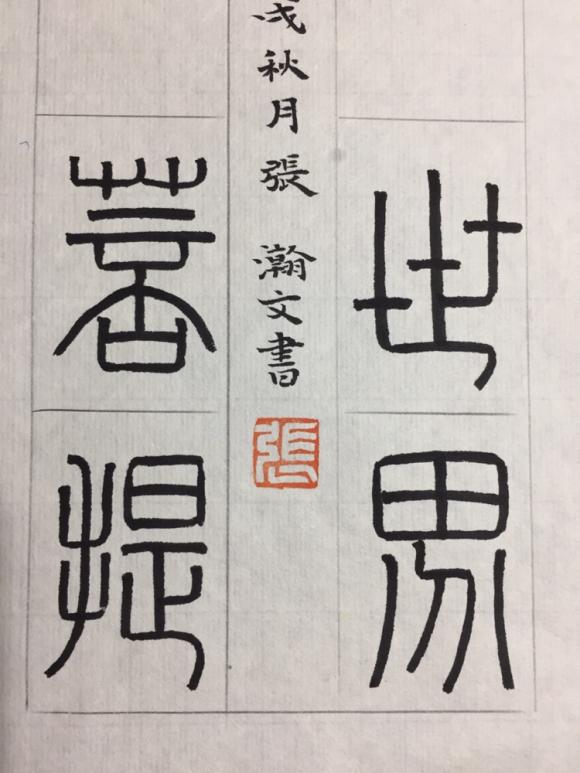 世界
戌秋月張瀚文書
張
菩提